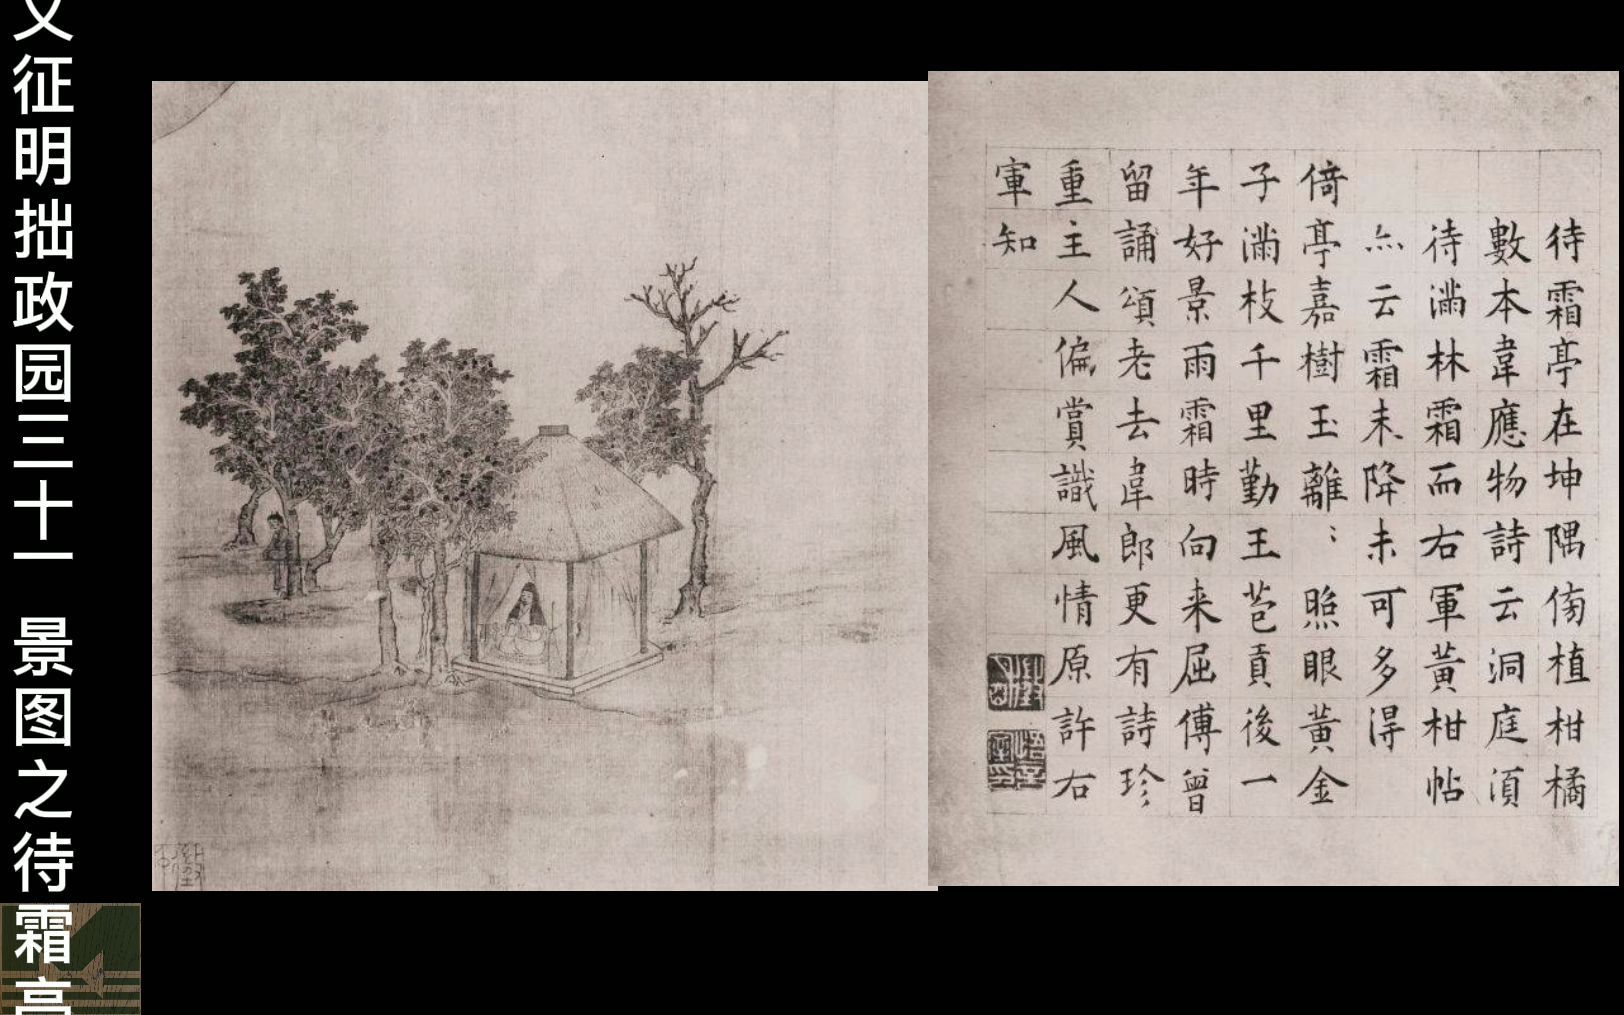 文征明拙政园三十一 景图之待霜亭
待霜亭在坤隅傍植柑橘
數本韋應物詩云洞庭須
待滿林霜而右軍黃柑帖
亦云霜未降未可多得
倚亭嘉樹玉離〻照眼黃金
子滿枝千里勤王苞貢後一
年好景雨霜時向来屈傅曾
留誦頌老去韋郎更有詩珍
重主人偏賞識風情原許右
軍知
悟言室印